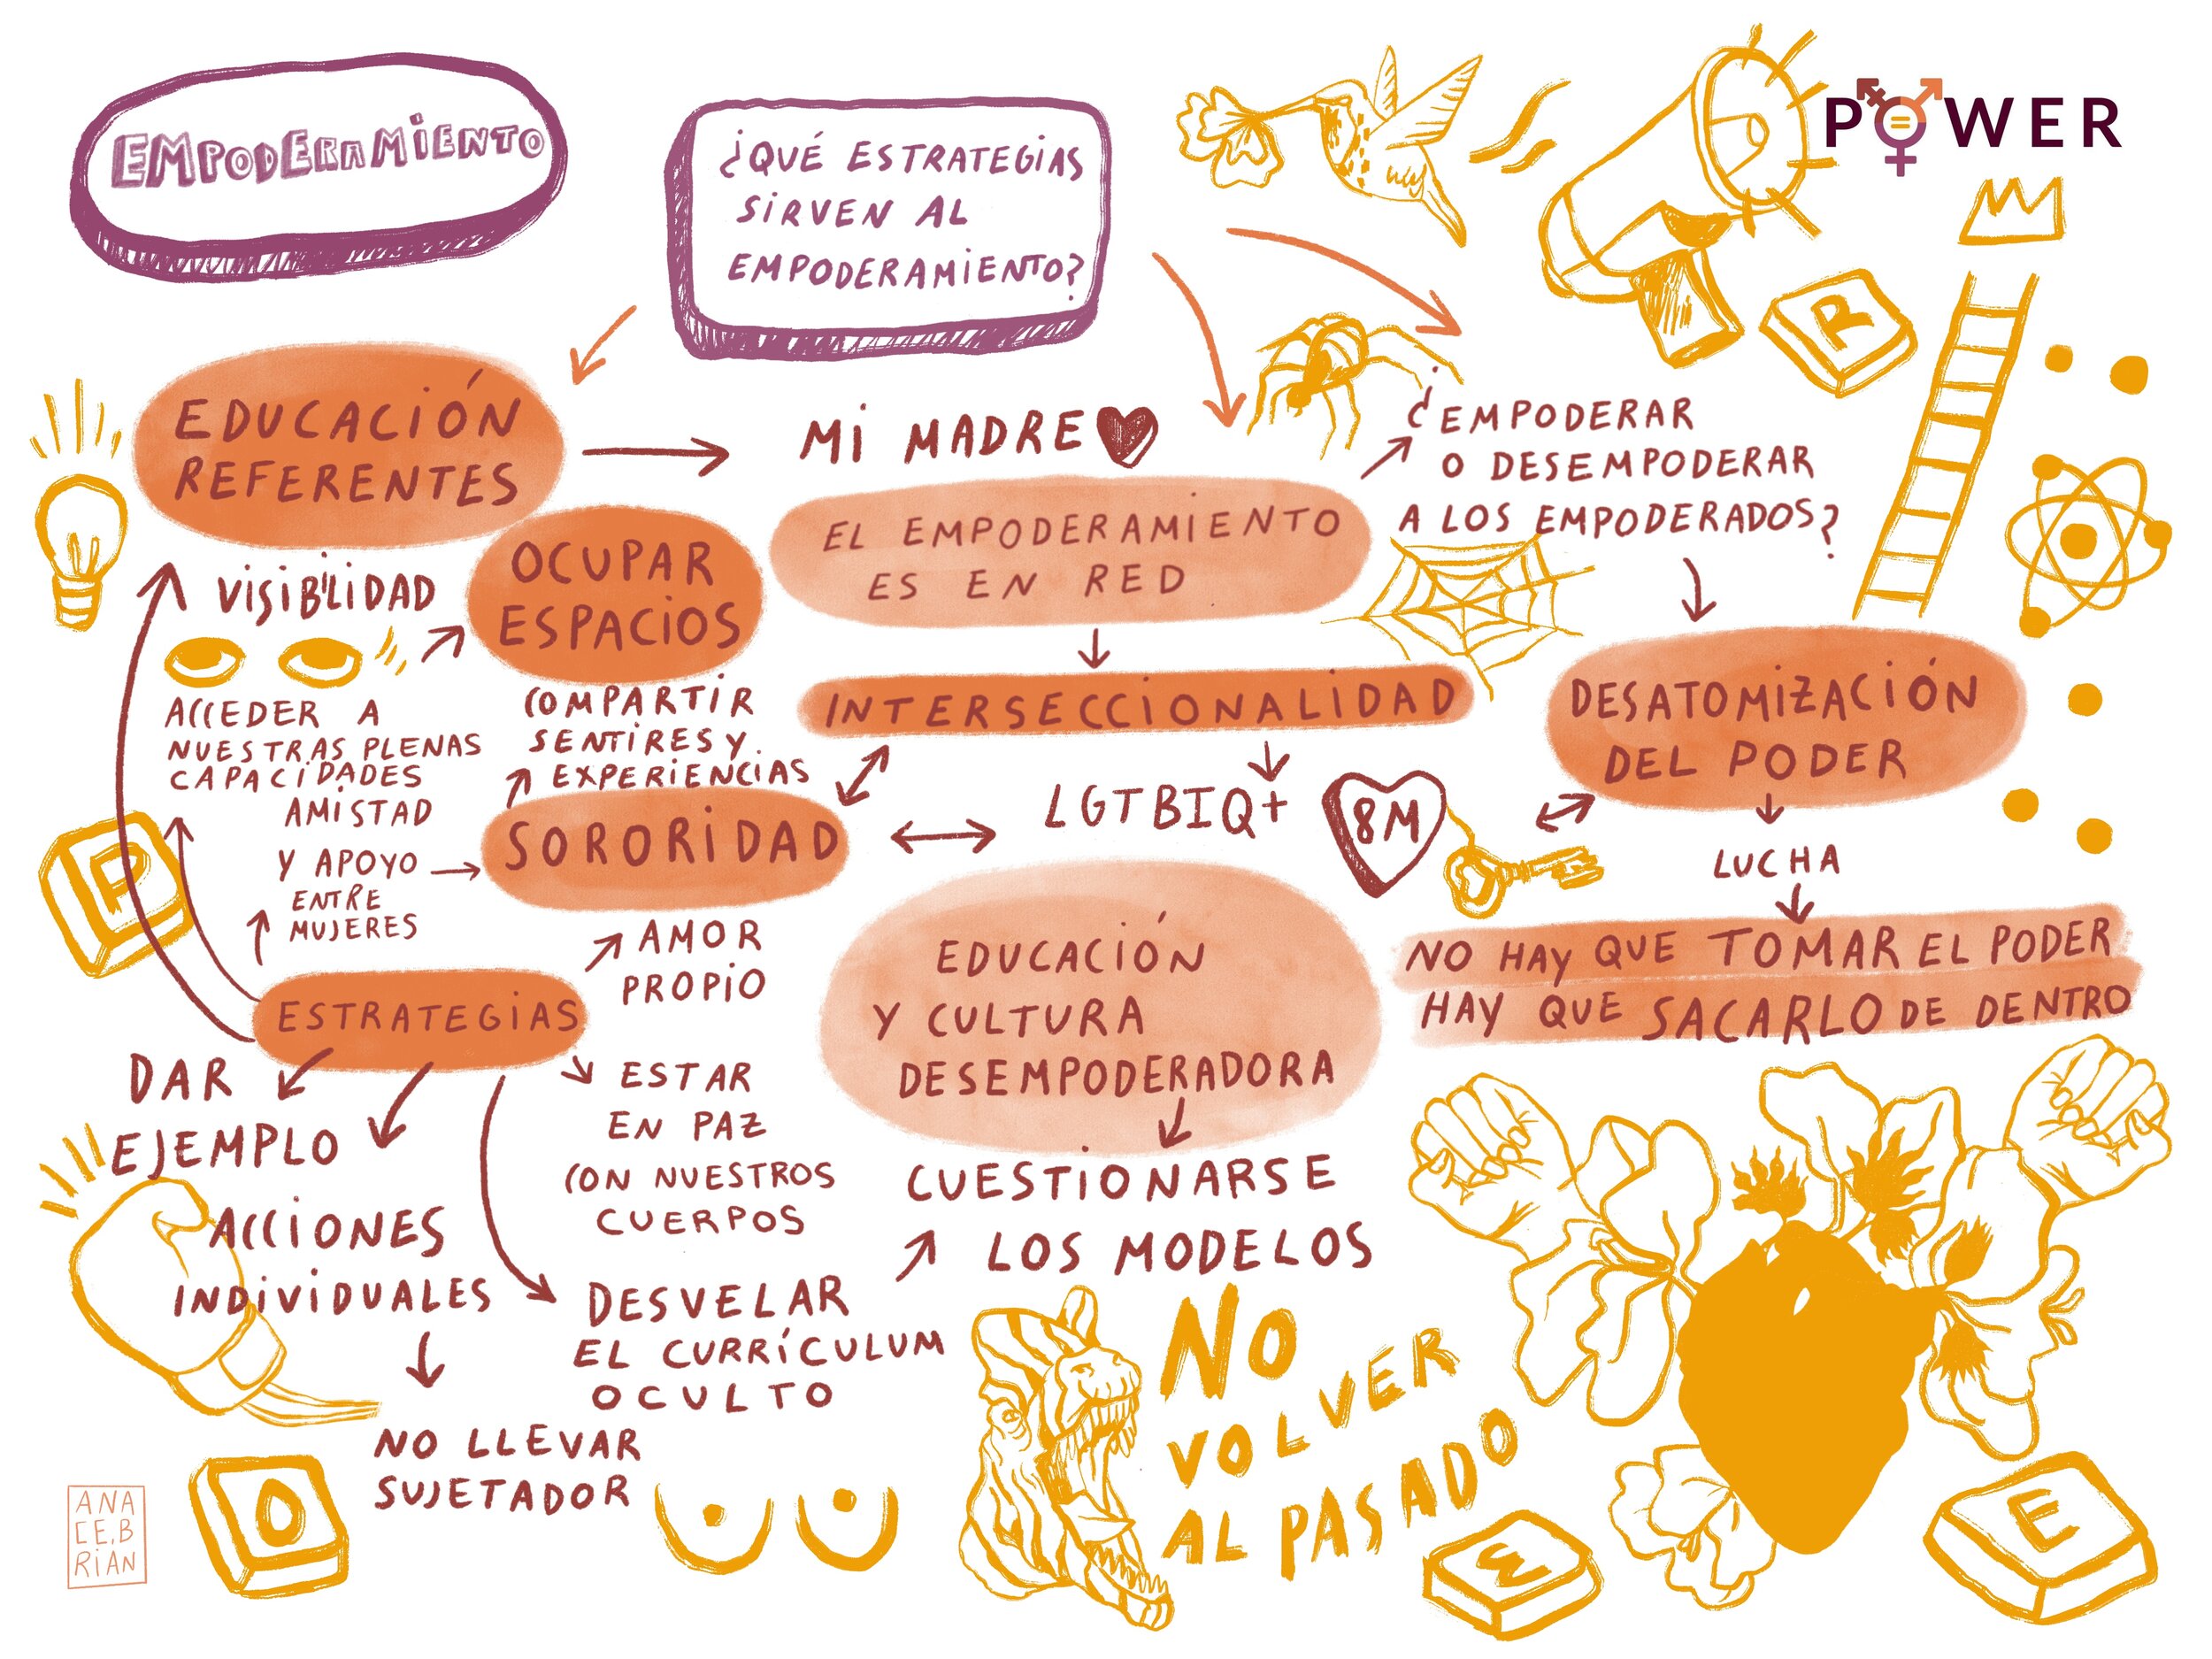 EMPODERAMIENTO
¿QUÉ ESTRATEGIAS
SIRVEN AL
EMPODERAMIENTO?
POWER
R
EDUCACIÓN
REFERENTES
MI MADRE
¿EMPODERAR
O DESEMPODERAR
A LOS EMPODERADOS?
EL EMPODERAMIENTO
ES EN RED
VISIBILIDAD
OCUPAR
ESPACIOS
INTERSECCIONALIDAD
DESATOMIZACIÓN
DEL PODER
ACCEDER A
NUESTRAS PLENAS
CAPACIDADES
COMPARTIR
SENTIRES Y
EXPERIENCIAS
AMISTAD
Y APOYO
ENTRE
MUJERES
SORORIDAD
LGTBIQ+
8M
LUCHA
P
NO HAY QUE TOMAR EL PODER
HAY QUE SACARLO DE DENTRO
AMOR
PROPIO
EDUCACIÓN
Y CULTURA
DESEMPODERADORA
ESTRATEGIAS
DAR
EJEMPLO
ESTAR
EN PAZ
CON NUESTROS
CUERPOS
CUESTIONARSE
LOS MODELOS
ACCIONES
INDIVIDUALES
DESVELAR
EL CURRÍCULUM
OCULTO
NO LLEVAR
SUJETADOR
NO
VOLVER
AL PASADO
ANA
CE.B
RIAN
O
W
E